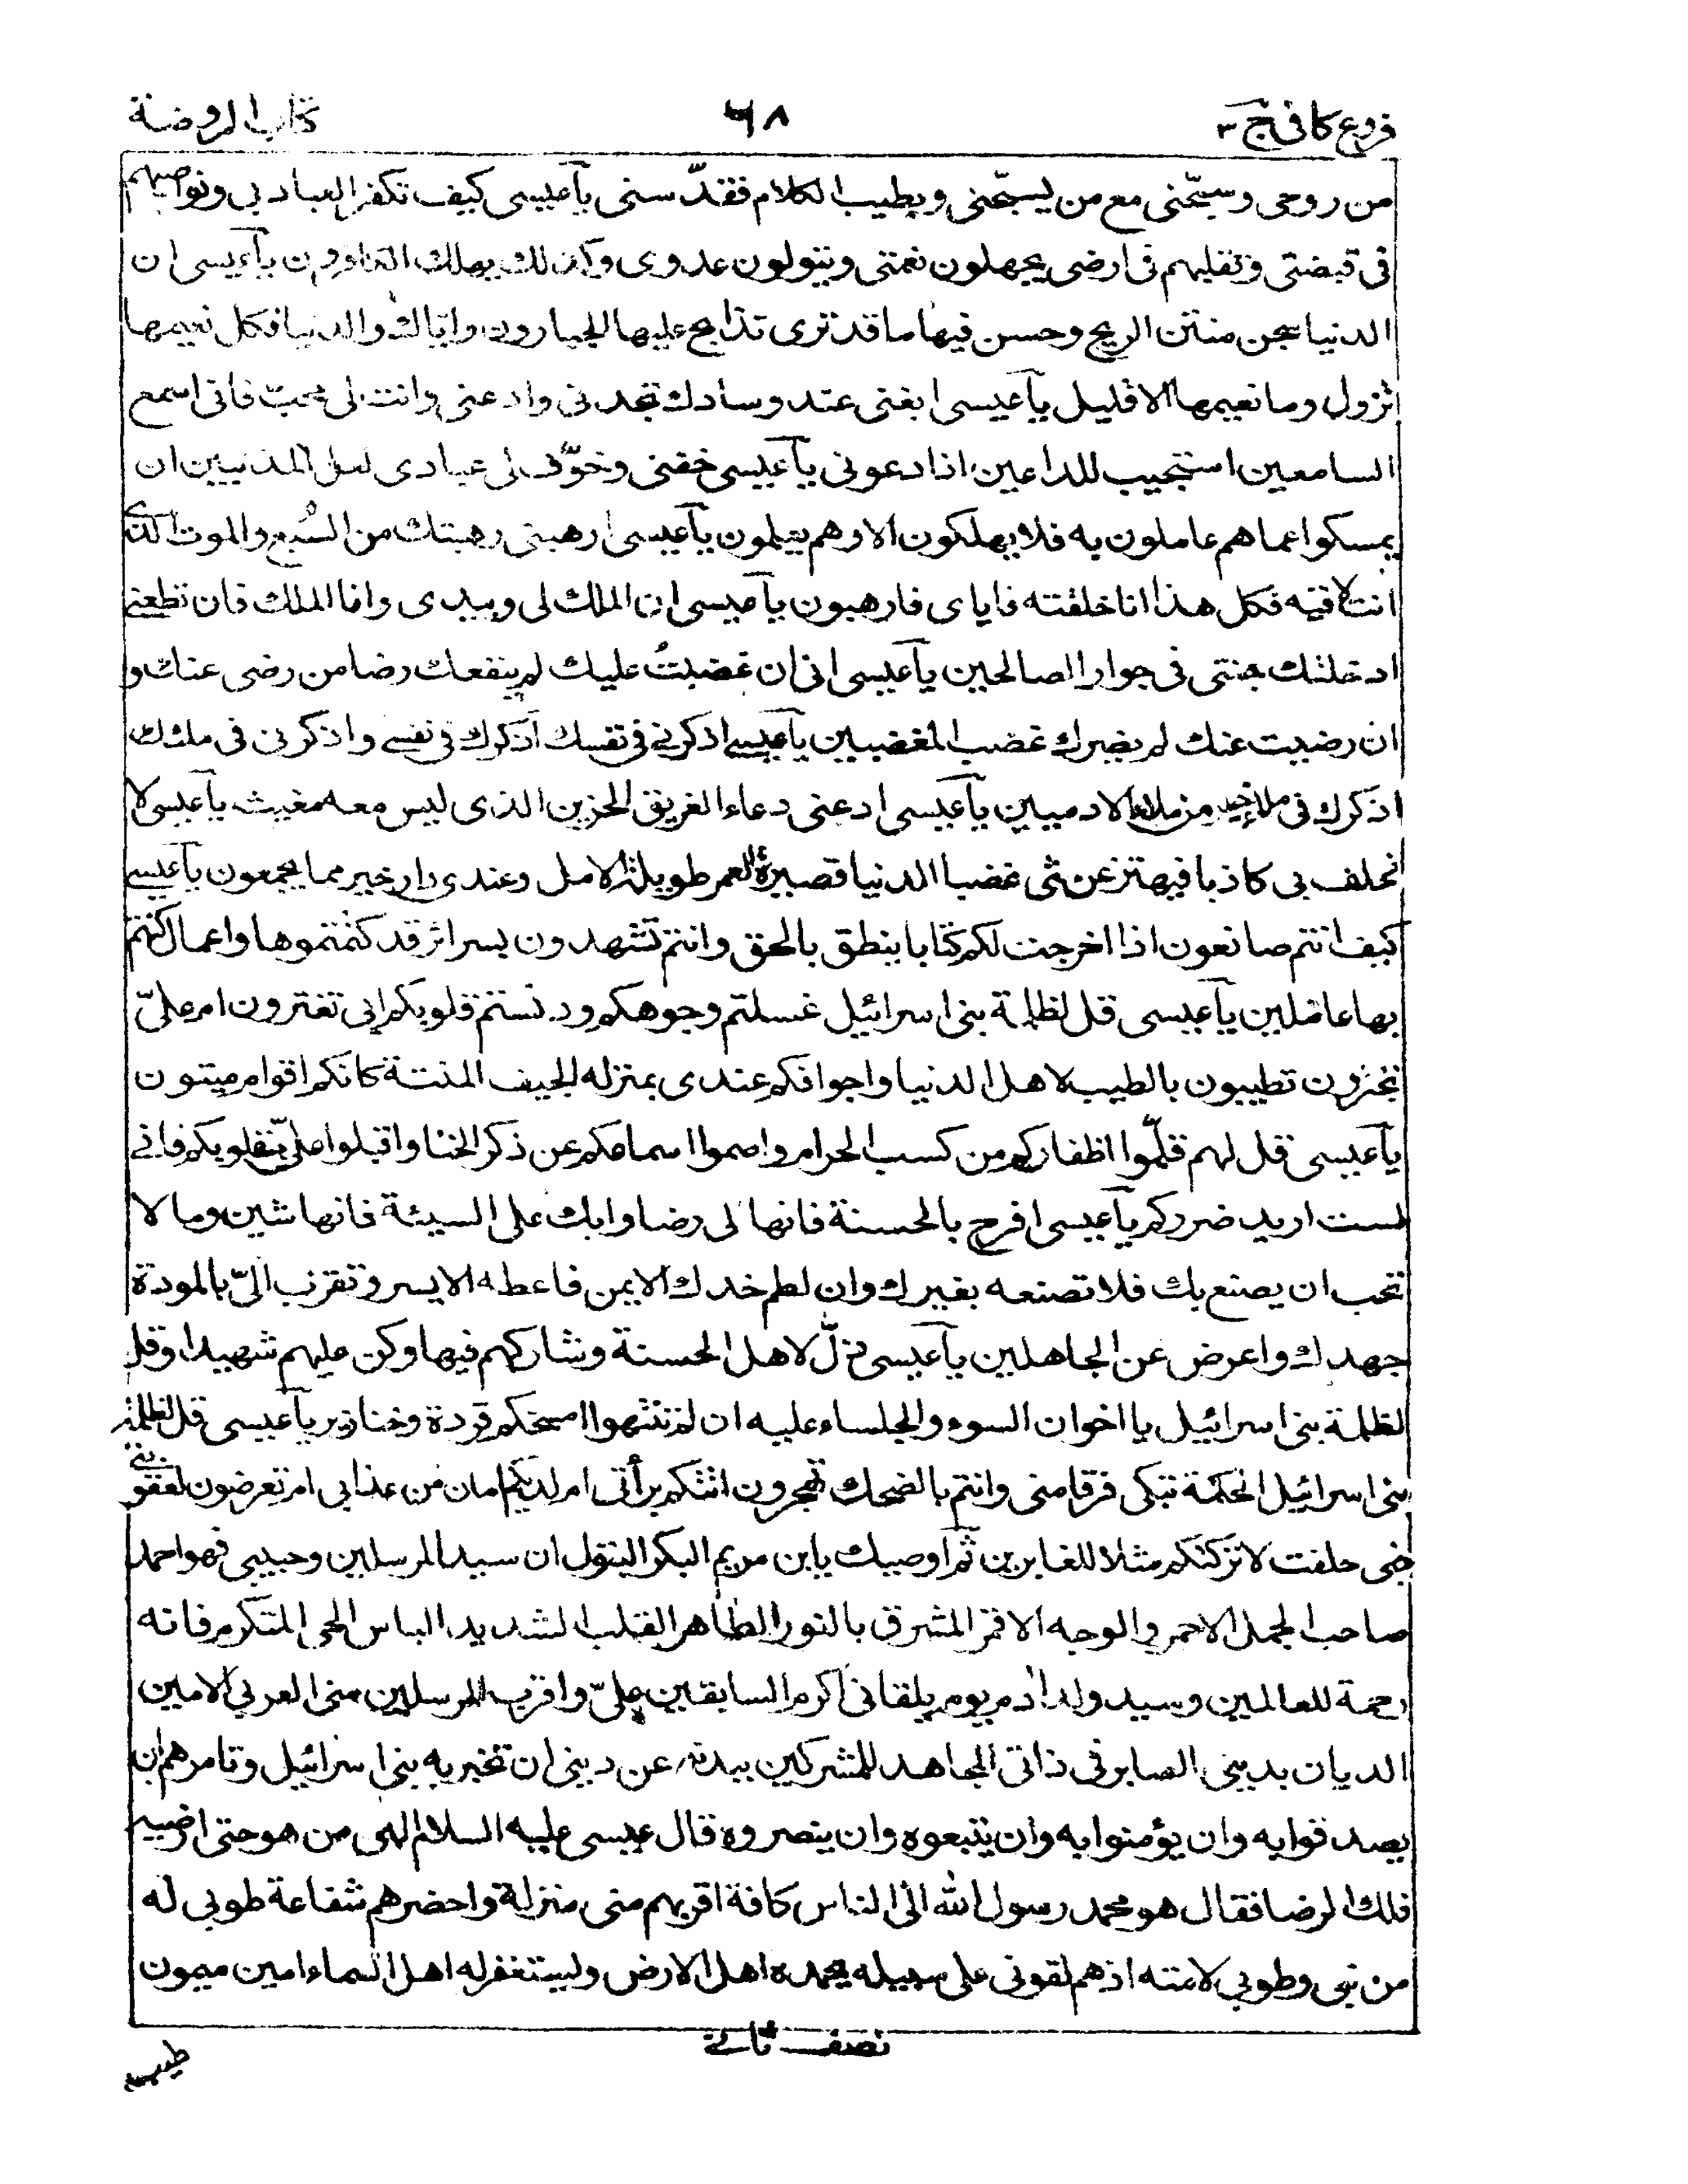 فروع كافى ج ٣
٦٨
كتاب الروضة
من روحى وسبحنى مع من يسبحنى وبطيب الكلام فقدسنى يا عيسى كيف تكفر العباد بى ونواصيهم
فى قبضتى وتقلبهم فى ارضى يجهلون نعمتى ويتولون عدوى وكذلك يهلك الكافرون يا عيسى ان
الدنيا سجن منتن الريح وحسن فيها ما قد ترى تذابح عليها الجبارون واياك والدنيا فكل نعيمها
تزول وما نعيمها الا قليل يا عيسى ابغنى عند وسادك تجدنى وادعنى وانت لى محب فانى اسمع
السامعين استجيب للداعين اذا دعونى يا عيسى خفنى وخوف بى عبادى لعل المذنبين ان
يمسكوا عما هم عاملون به فلا يهلكون الا وهم يعلمون يا عيسى ارهبنى رهبتك من السبع والموت الذى
انت لاقيه فكل هذا انا خلقته فاياى فارهبون يا عيسى ان الملك لى وبيدى وانا الملك فان تطعنى
ادخلتك جنتى فى جوار الصالحين يا عيسى انى ان غضبتُ عليك لم ينفعك رضا من رضى عنك و
ان رضيت عنك لم يضرك غضب المغضبين يا عيسى اذكرنى فى نفسك اذكرك فى نفسى واذكرنى فى ملئك
اذكرك فى ملاء خير من ملاء الادميين يا عيسى ادعنى دعاء الغريق الحزين الذى ليس معه مغيث يا عيسى لا
تحلف بى كاذبا فيهتز عرشى غضبا الدنيا قصيرة العمر طويلة الامل وعندى دار خير مما يجمعون يا عيسى
كيف انتم صانعون اذا اخرجت لكم كتابا ينطق بالحق وانتم تشهدون بسرائر قد كتمتموها واعمال كنتم
بها عاملين يا عيسى قل لظلمة بنى اسرائيل غسلتم وجوهكم ودنستم قلوبكم ابى تغترون ام علىّ
تجترون تطيبون بالطيب لاهل الدنيا واجوافكم عندى بمنزله الجيف المنتنة كانكم اقوام ميتون
يا عيسى قل لهم قلّموا اظفاركم من كسب الحرام واصموا اسماعكم عن ذكر الخنا واقبلوا علىّ بقلوبكم فانى
لست اريد ضرركم يا عيسى افرح بالحسنة فانها لى رضا وابك على السيئة فانها شين وما لا
تحب ان يصنع بك فلا تصنعه بغيرك وان لطم خدك الايمن فاعطه الايسر وتقرب الىّ بالمودة
جهدك واعرض عن الجاهلين يا عيسى ذلّ لاهل الحسنة وشاركهم فيها وكن عليهم شهيدا وقل
لظلمة بنى اسرائيل يا اخوان السوء والجلساء عليه ان لم تنتهوا امسخكم قردة وخنازير يا عيسى قل لظلمة
بنى اسرائيل الحكمة تبكى فرقا منى وانتم بالضحك تهجرون اتتكم براتى ام لديكم امان من عذابى ام تعرضون لعقوبتى
فبى حلفت لاتركنكم مثلا للغابرين ثم اوصيك يابن مريم البكر البتول ان سيد المرسلين وحبيبى فهو احمد
صاحب الجمل الاحمر والوجه الاقمر المشرق بالنور الطاهر القلب الشديد الباس الحى المتكرم فانه
رحمة للعالمين وسيد ولد ادم يوم يلقانى اكرم السابقين علىّ واقرب المرسلين منى العربى الامين
الديان بدينى الصابر فى ذاتى المجاهد المشركين بيده عن دينى ان تخبر به بنى اسرائيل وتامرهم ان
يصدقوا به وان يؤمنوا به وان يتبعوه وان ينصروه قال عيسى عليه السلام الهى من هو حتى ارضيه
فلك الرضا فقال هو محمد رسول الله الى الناس كافة اقربهم منى منزلة واحضرهم شفاعة طوبى له
من نبى وطوبى لامته اذ هم لقونى على سبيله يحمده اهل الارض وليستغفر له اهل السماء امين ميمون
نصف ثانى
طيب